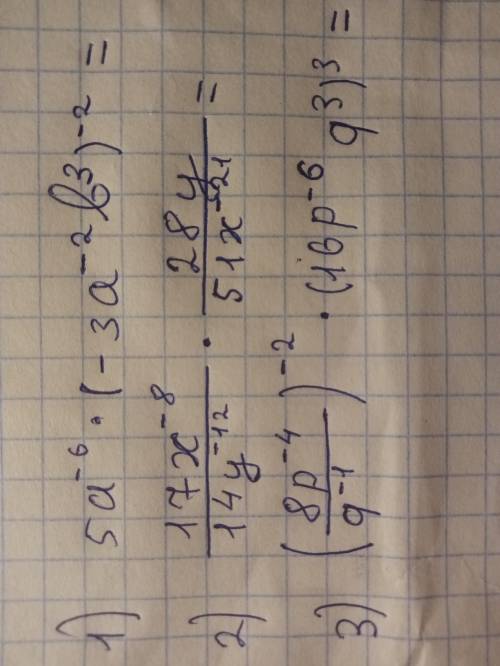 1) 5a⁻⁶ · (-3a⁻² b³)⁻² =
2) 17x⁻⁸ / 14y⁻¹² · 28y / 51x⁻²¹ =
3) (8p⁻⁴ / q⁻¹)⁻² · (16p⁻⁶ q³)³ =